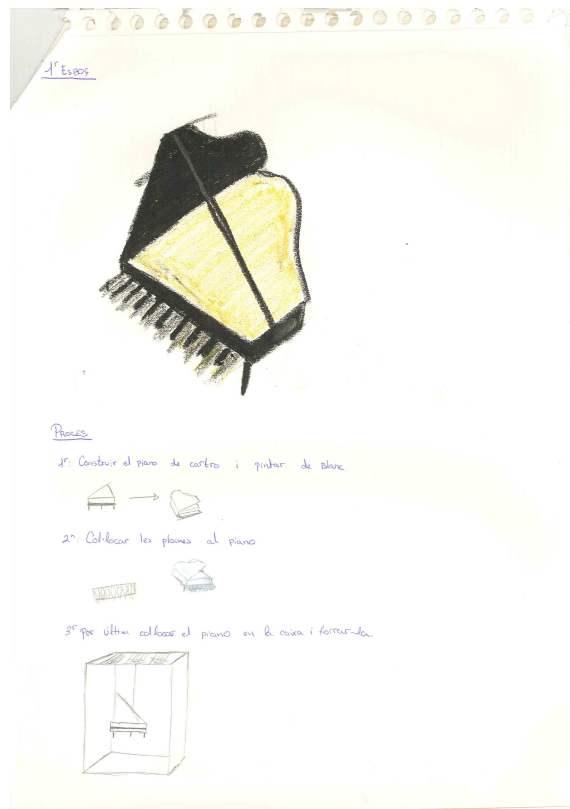 1r Esbós
Procés
1r: Construir el piano de cartro i pintar de blanc
2n: Col·locar les plomes al piano
3r Per últim collocar el piano en la caixa i forrar-la